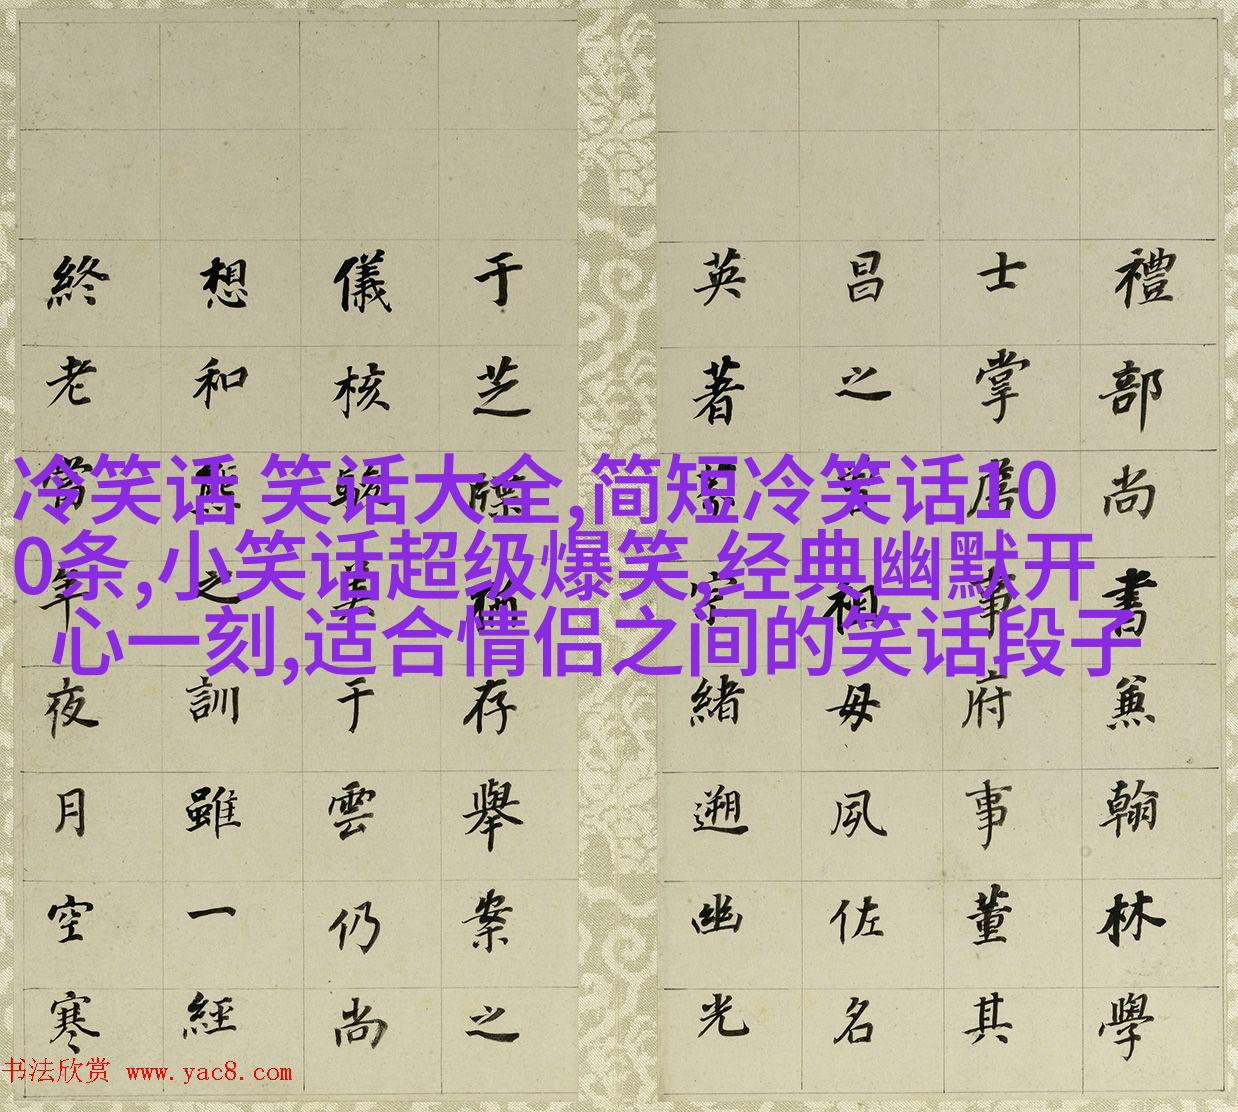 冷笑话 笑话大全,简短冷笑话10
0条,小笑话超级爆笑,经典幽默开
心一刻,适合情侣之间的笑话段子
禮部尚書兼翰林學
士掌詹事府事董其
昌之祖母夙佐名
英著宗緒遡幽光
于芝牒存舉案之
儀核于雲仍尚
想和熊之訓雖一經
終老當年夜月空寒
书法欣赏 www.yac8.com